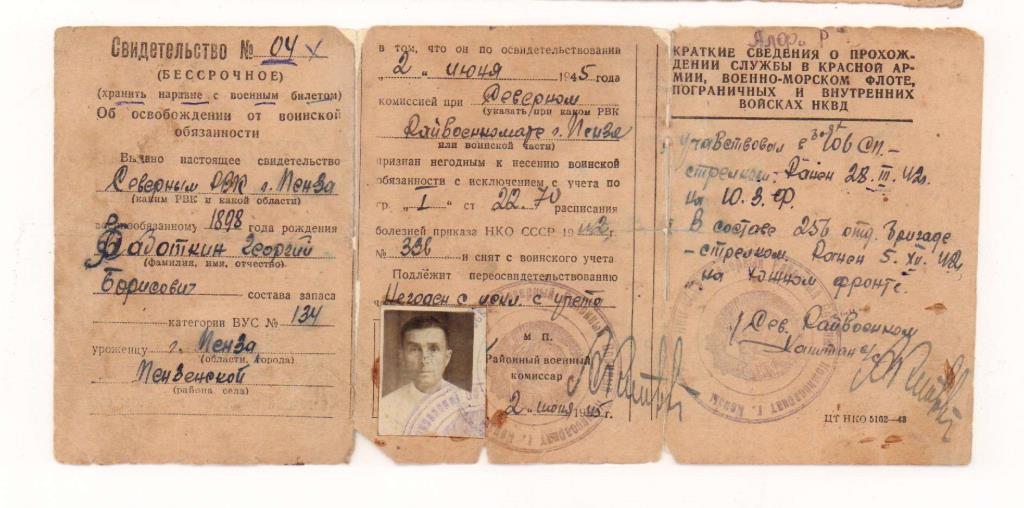 Свидетельство № 04
(БЕССРОЧНОЕ)
(хранить наравне с военным билетом)
Об освобождении от воинской
обязанности
Выдано настоящее свидетельство
Северным РВК г. Пенза
(каким РВК и какой области)
военнообязанному 1898 года рождения
Работкин Георгий
(фамилия, имя, отчество)
Борисович состава запаса
категории ВУС № 134
уроженцу г. Пенза
(области, города)
Пензенской
(района, села)
в том, что он по освидетельствовании
„2" июня 1945 года
комиссией при Северном
(указать при каком РВК
Райвоенкомате г. Пенза
или воинской части)
признан негодным к несению воинской
обязанности с исключением с учета по
гр. „I" ст 22.70 расписания
болезней приказа НКО СССР 1942 г.
№ 336 и снят с воинского учета
Подлежит переосвидетельствованию
Негоден с искл. с учета
М П.
Районный военный
комиссар
2 июня 1945 г.
КРАТКИЕ СВЕДЕНИЯ О ПРОХОЖ-
ДЕНИИ СЛУЖБЫ В КРАСНОЙ АР-
МИИ, ВОЕННО-МОРСКОМ ФЛОТЕ,
ПОГРАНИЧНЫХ И ВНУТРЕННИХ
ВОЙСКАХ НКВД
участвовал с СП.-
стрелком. Ранен 28.III.42г.
на Ю.З.Ф.
В составе 256 отд. бригаде
- стрелком. Ранен 5.XII.42г.
на Южном фронте.
Сев. Райвоенком
Капитан а/с
ЦТ НКО 5162—43